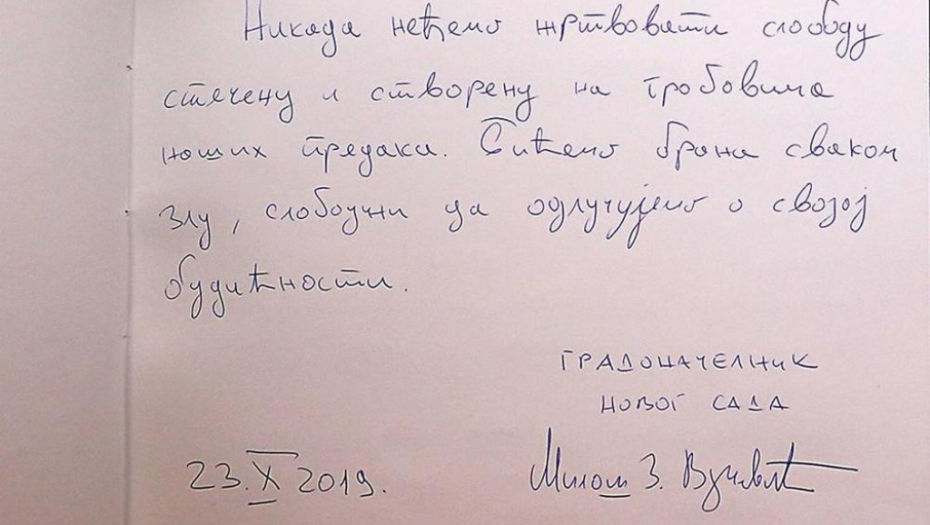 Никада нећемо жртвовати слободу
стечену и створену на гробовима
наших предака. Бићемо брана сваком
злу, слободни да одлучујемо о својој
будућности.
ГРАДОНАЧЕЛНИК
НОВОГ САДА
23.X 2019.
Милош З. Вучевић